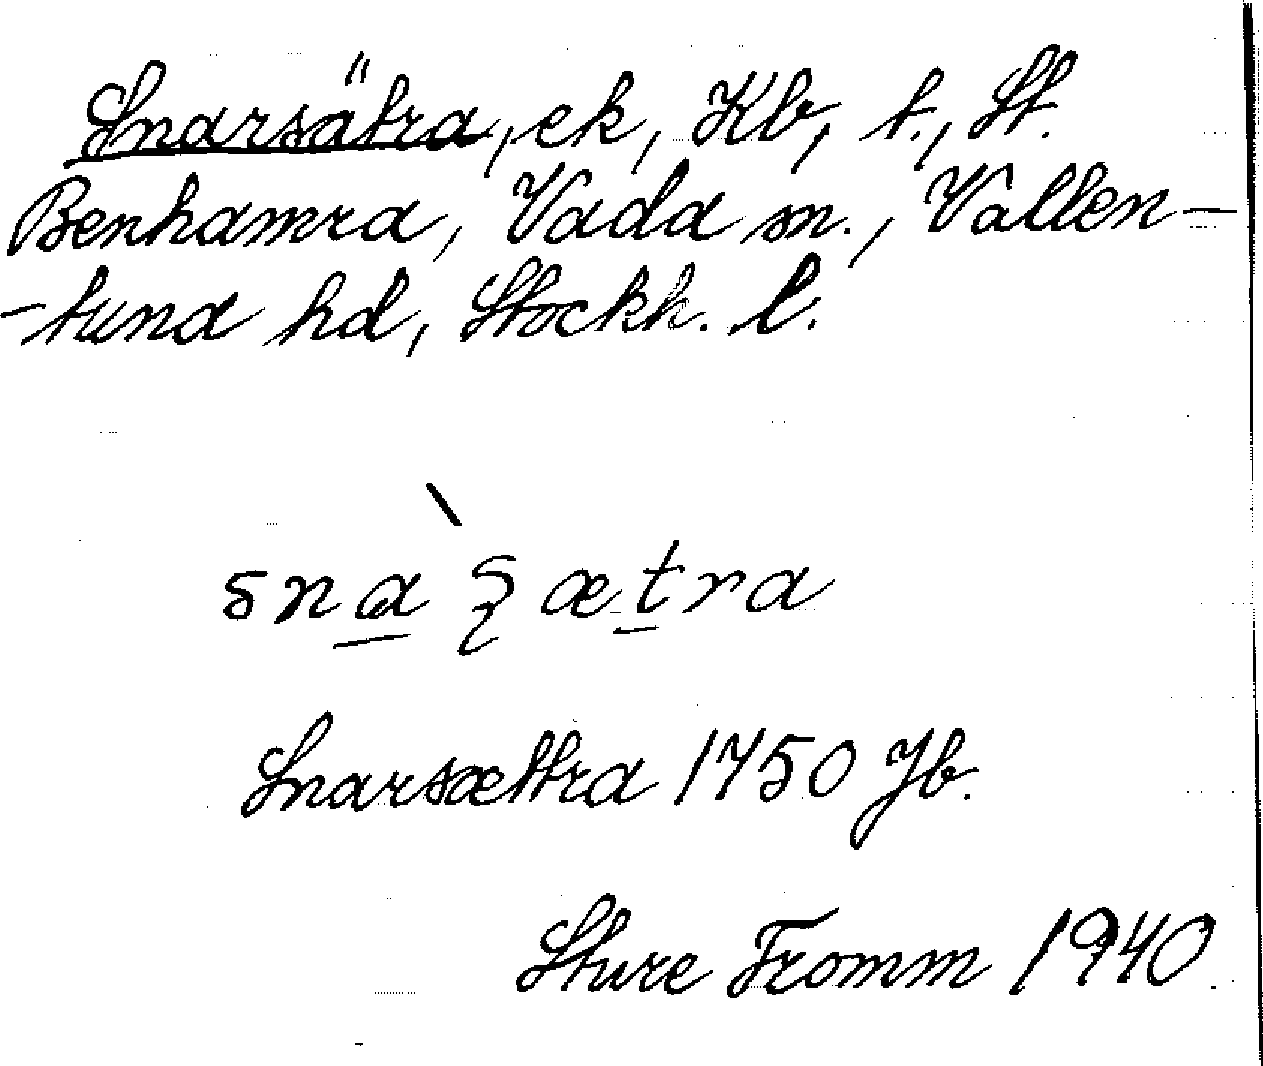 Snarsätra, ek, Kb, t., St.
Benhamra, Vada sn., Vallen-
-tuna hd, Stockh. l.
snạ̀ʂætra
Snarsættra 1750 Jb.
Sture Fromm 1940.